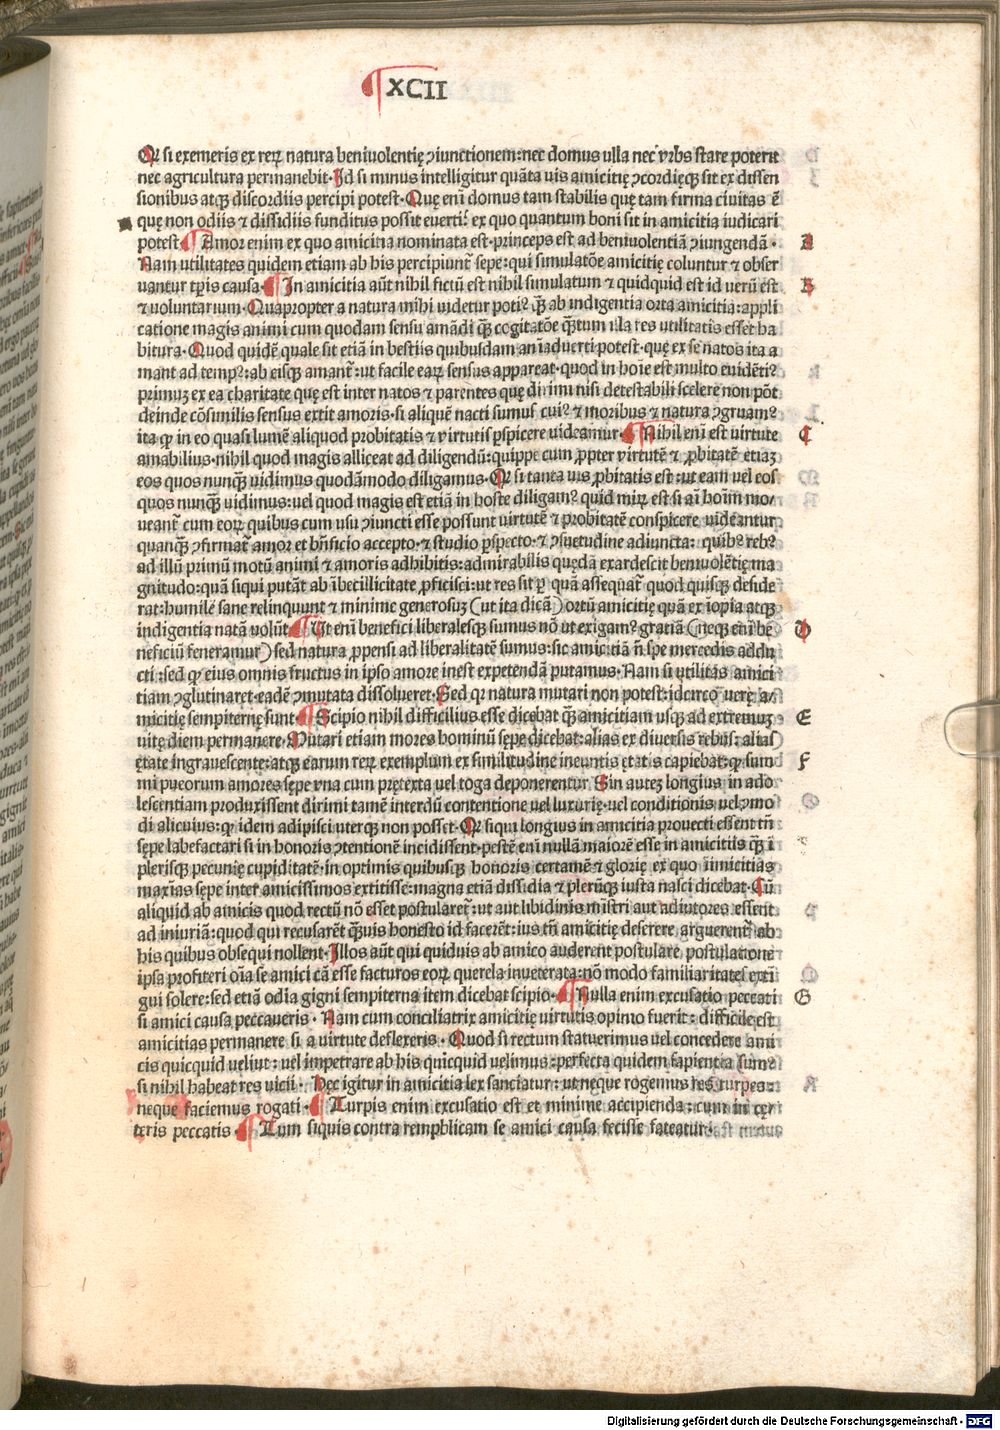 XCII
Qꝛ si exemeris ex reꝝ natura beniuolentię ↄiunctionem:nec domus ulla nec vrbs stare poterit
nec agricultura permanebit·Id si minus intelligitur quãta uis amicitię ↄcordięqꝫ sit ex dissen
sionibus atqꝫ discordiis percipi potest·Quę enĩ domus tam stabilis quę tam firma ciuitas ẽ
quę non odiis ⁊ dissidiis funditus possit euerti: ex quo quantum boni sit in amicitia iudicari
potest ¶ Amor enim ex quo amicitia nominata est·princeps est ad beniuolentiã ↄiungendã· A
Nam utilitates quidem etiam ab his percipiunt᷑ sepe:qui simulatõe amicitię coluntur ⁊ obser
uantur tꝑis causa·¶ In amicitia aũt nihil fictũ est nihil simulatum ⁊ quidquid est id uerũ est B
⁊ uoluntarium·Quapropter a natura mihi uidetur potiꝰ qꝫ̃ ab indigentia orta amicitia:appli
catione magis animi cum quodam sensu amãdi qꝫ̃ cogitatõe qꝫ̃tum illa res utilitatis esset ha
bitura·Quod quidẽ quale sit etiã in bestiis quibusdam aniaduerti potest·quę ex se natos ita a
mant ad tempꝰ:ab eisqꝫ amant᷑:ut facile eaꝝ sensus appareat·quod in hoĩe est multo euidẽtiꝰ
primuꝫ ex ea charitate quę est inter natos ⁊ parentes quę dirimi nisi detestabili scelere non põt
deinde cõsimilis sensus extit amoris·si aliquẽ nacti sumus cuiꝰ ⁊ moribus ⁊ natura ↄgruamꝰ
ita ꝙ in eo quasi lumẽ aliquod probitatis ⁊ virtutis ꝑspicere uideamur·¶ Nihil enĩ est uirtute C
amabilius·nihil quod magis alliceat ad diligendũ:quippe cum ꝓpter virtutẽ ⁊ ꝓbitatẽ etiaꝫ
eos quos nunqꝫ̃ uidimus quodãmodo diligamus·Qꝛ si tanta uis ꝓbitatis est:ut eam uel eos
quos nunqꝫ̃ uidimus:uel quod magis est etiã in hoste diligamꝰ quid miꝝ est si aĩ hoĩm mo/
ueant᷑ cum eoꝝ quibus cum usu ↄiuncti esse possunt virtutẽ ⁊ probitatẽ conspicere uideantur
quanqꝫ̃ ↄfirmat᷑ amor et bñficio accepto·⁊ studio ꝑspecto·⁊ ↄsuetudine adiuncta: quibꝰ rebꝰ
ad illũ primũ motũ animi ⁊ amoris adhibitis:admirabilis quędã exardescit beniuolẽtię ma
gnitudo:quã siqui putãt ab ĩbecillicitate ꝓficisci:ut res sit ꝑ quã assequat᷑ quod quisqꝫ deside
rat:humilẽ sane relinquunt ⁊ minime generosuꝫ (ut ita dicã) ortũ amicitię quã ex ĩopia atqꝫ
indigentia natã volũt ¶ Ut enĩ benefici liberalesqꝫ sumus nõ ut exigamꝰ gratiã (neqꝫ enĩ be D
neficiũ feneramur) sed natura ꝓpensi ad liberalitatẽ sumus:sic amicitiã ñ spe mercedis addu
cti:sed ꝙ eius omnis fructus in ipso amore inest expetendã putamus·Nam si utilitas amici
tiam ↄglutinaret·eadẽ ↄmutata dissolueret·Sed qꝛ natura mutari non potest:idcirco uerę a/
micitię sempiternę sunt ¶ Scipio nihil difficilius esse dicebat qꝫ̃ amicitiam usqꝫ ad extremuꝫ E
uitę diem permanere·Mutari etiam mores hominũ sępe dicebat:alias ex diuersis rebus:alias
ętate ingrauescente:atqꝫ earum reꝝ exemplum ex similitudine ineuntis etatis capiebat:ꝙ sum F
mi pueorum amores sępe vna cum prętexta uel toga deponerentur·Sin auteꝫ longius in ado
lescentiam produxissent dirimi tamẽ interdũ contentione uel luxurię·vel conditionis uel ↄmo
di alicuius:ꝙ idem adipisci uterqꝫ non posset·Qꝛ siqui longius in amicitia prouecti essent tñ
sępe labefactari si in honoris ↄtentionẽ incidissent·pestẽ enĩ nullã maiorẽ esse in amicitiis qꝫ̃ ĩ
plerisqꝫ pecunię cupiditatẽ·in optimis quibusqꝫ honoris certamẽ ⁊ glorię ex quo ĩimicitias
maxĩas sępe inter amicissimos extitisse:magna etiã dissidia ⁊ plerũqꝫ iusta nasci dicebat·Cũ
aliquid ab amicis quod rectũ nõ esset postularet᷑:ut aut libidinis mĩstri aut adiutores essent
ad iniuriã:quod qui recusarẽt qꝫ̃uis honesto id facerẽt:ius tñ amicitię deserere arguerent᷑ ab
his quibus obsequi nollent·Illos aũt qui quiduis ab amico auderent postulare postulatione
ipsa profiteri oĩa se amici cã esse facturos eoꝝ querela inueterata:nõ modo familiaritates exti
gui solere:sed etiã odia gigni sempiterna item dicebat scipio·¶ Nulla enim excusatio peccati G
si amici causa peccaueris·Nam cum conciliatrix amicitię virtutis opinio fuerit:difficile est
amicitias permanere si a virtute deflexeris·Quod si rectum statuerimus uel concedere ami
cis quicquid ueliut:uel impetrare ab his quicquid uelimus:perfecta quidem sapientia sumꝰ
si nihil habeat res uicii·Hec igitur in amicitia lex sanciatur:ut neque rogemus res turpes:
neque faciemus rogati·¶ Turpis enim excusatio est et minime accipienda:cum in cęr
teris peccatis·¶ Tum siquis contra rempublicam se amici causa fecisse fateatur·
Digitalisierung gefördert durch die Deutsche Forschungsgemeinschaft · DFG